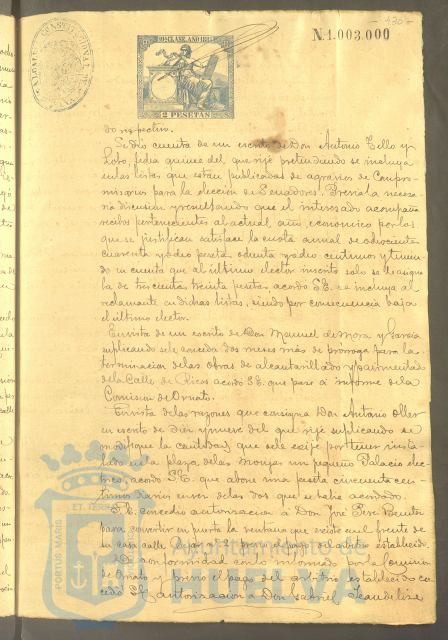 N.1.003.000
10ª CLASE. AÑO 188
2 PESETAS
do respectivo.
Se dió cuenta de un escrito de Don Antonio Tello y
Lobo, fecha quince del que rije pretendiendo se incluya
en las listas que están publicadas de agrarios de Compro-
misarios para la elección de Senadores. Previa la necesa-
ria discusión y resultando que el interesado acompaña
recibos pertenecientes al actual año económico por los
que se justifican satisface la cuota anual de
cuarenta y pesetas ochenta y céntimos y tenien-
do en cuenta que al último elector inscrito solo se le asigna
la de trescientas treinta pesetas acordó S.E. se incluya al
reclamante en dichas listas, siendo por consecuencia baja
el último elector.
En vista de un escrito de Don Manuel de Mora y García
suplicando se le conceda dos meses más de prórroga para la
terminación de las obras de alcantarillado y pavimentado
de la Calle de Ricos acordó S.E. que pase a informe de la
Comisión de Ornato.
En vista de las razones que consigna Don Antonio Oller
en escrito de diez y nueve del que rije suplicando se
modifique la cantidad que se le exije por tener insta-
lado en la plaza de las Monjas un pequeño Palacio
acordó S.E. que abone una peseta cincuenta cén-
timos diarios en vez de las dos que se había acordado.
S.E. concedió autorización a Don José Pérez Benítez
para convertir en puerta la ventana que existe en el frente de
su casa calle previo pago del arbitrio establecido.
De conformidad con lo informado por la Comisión
de Ornato y previo el pago del arbitrio establecido con-
cedió S.E. autorización a Don Gabriel
PORTUS MARIS
ET TERRAE
Ayuntamiento de
HUELVA